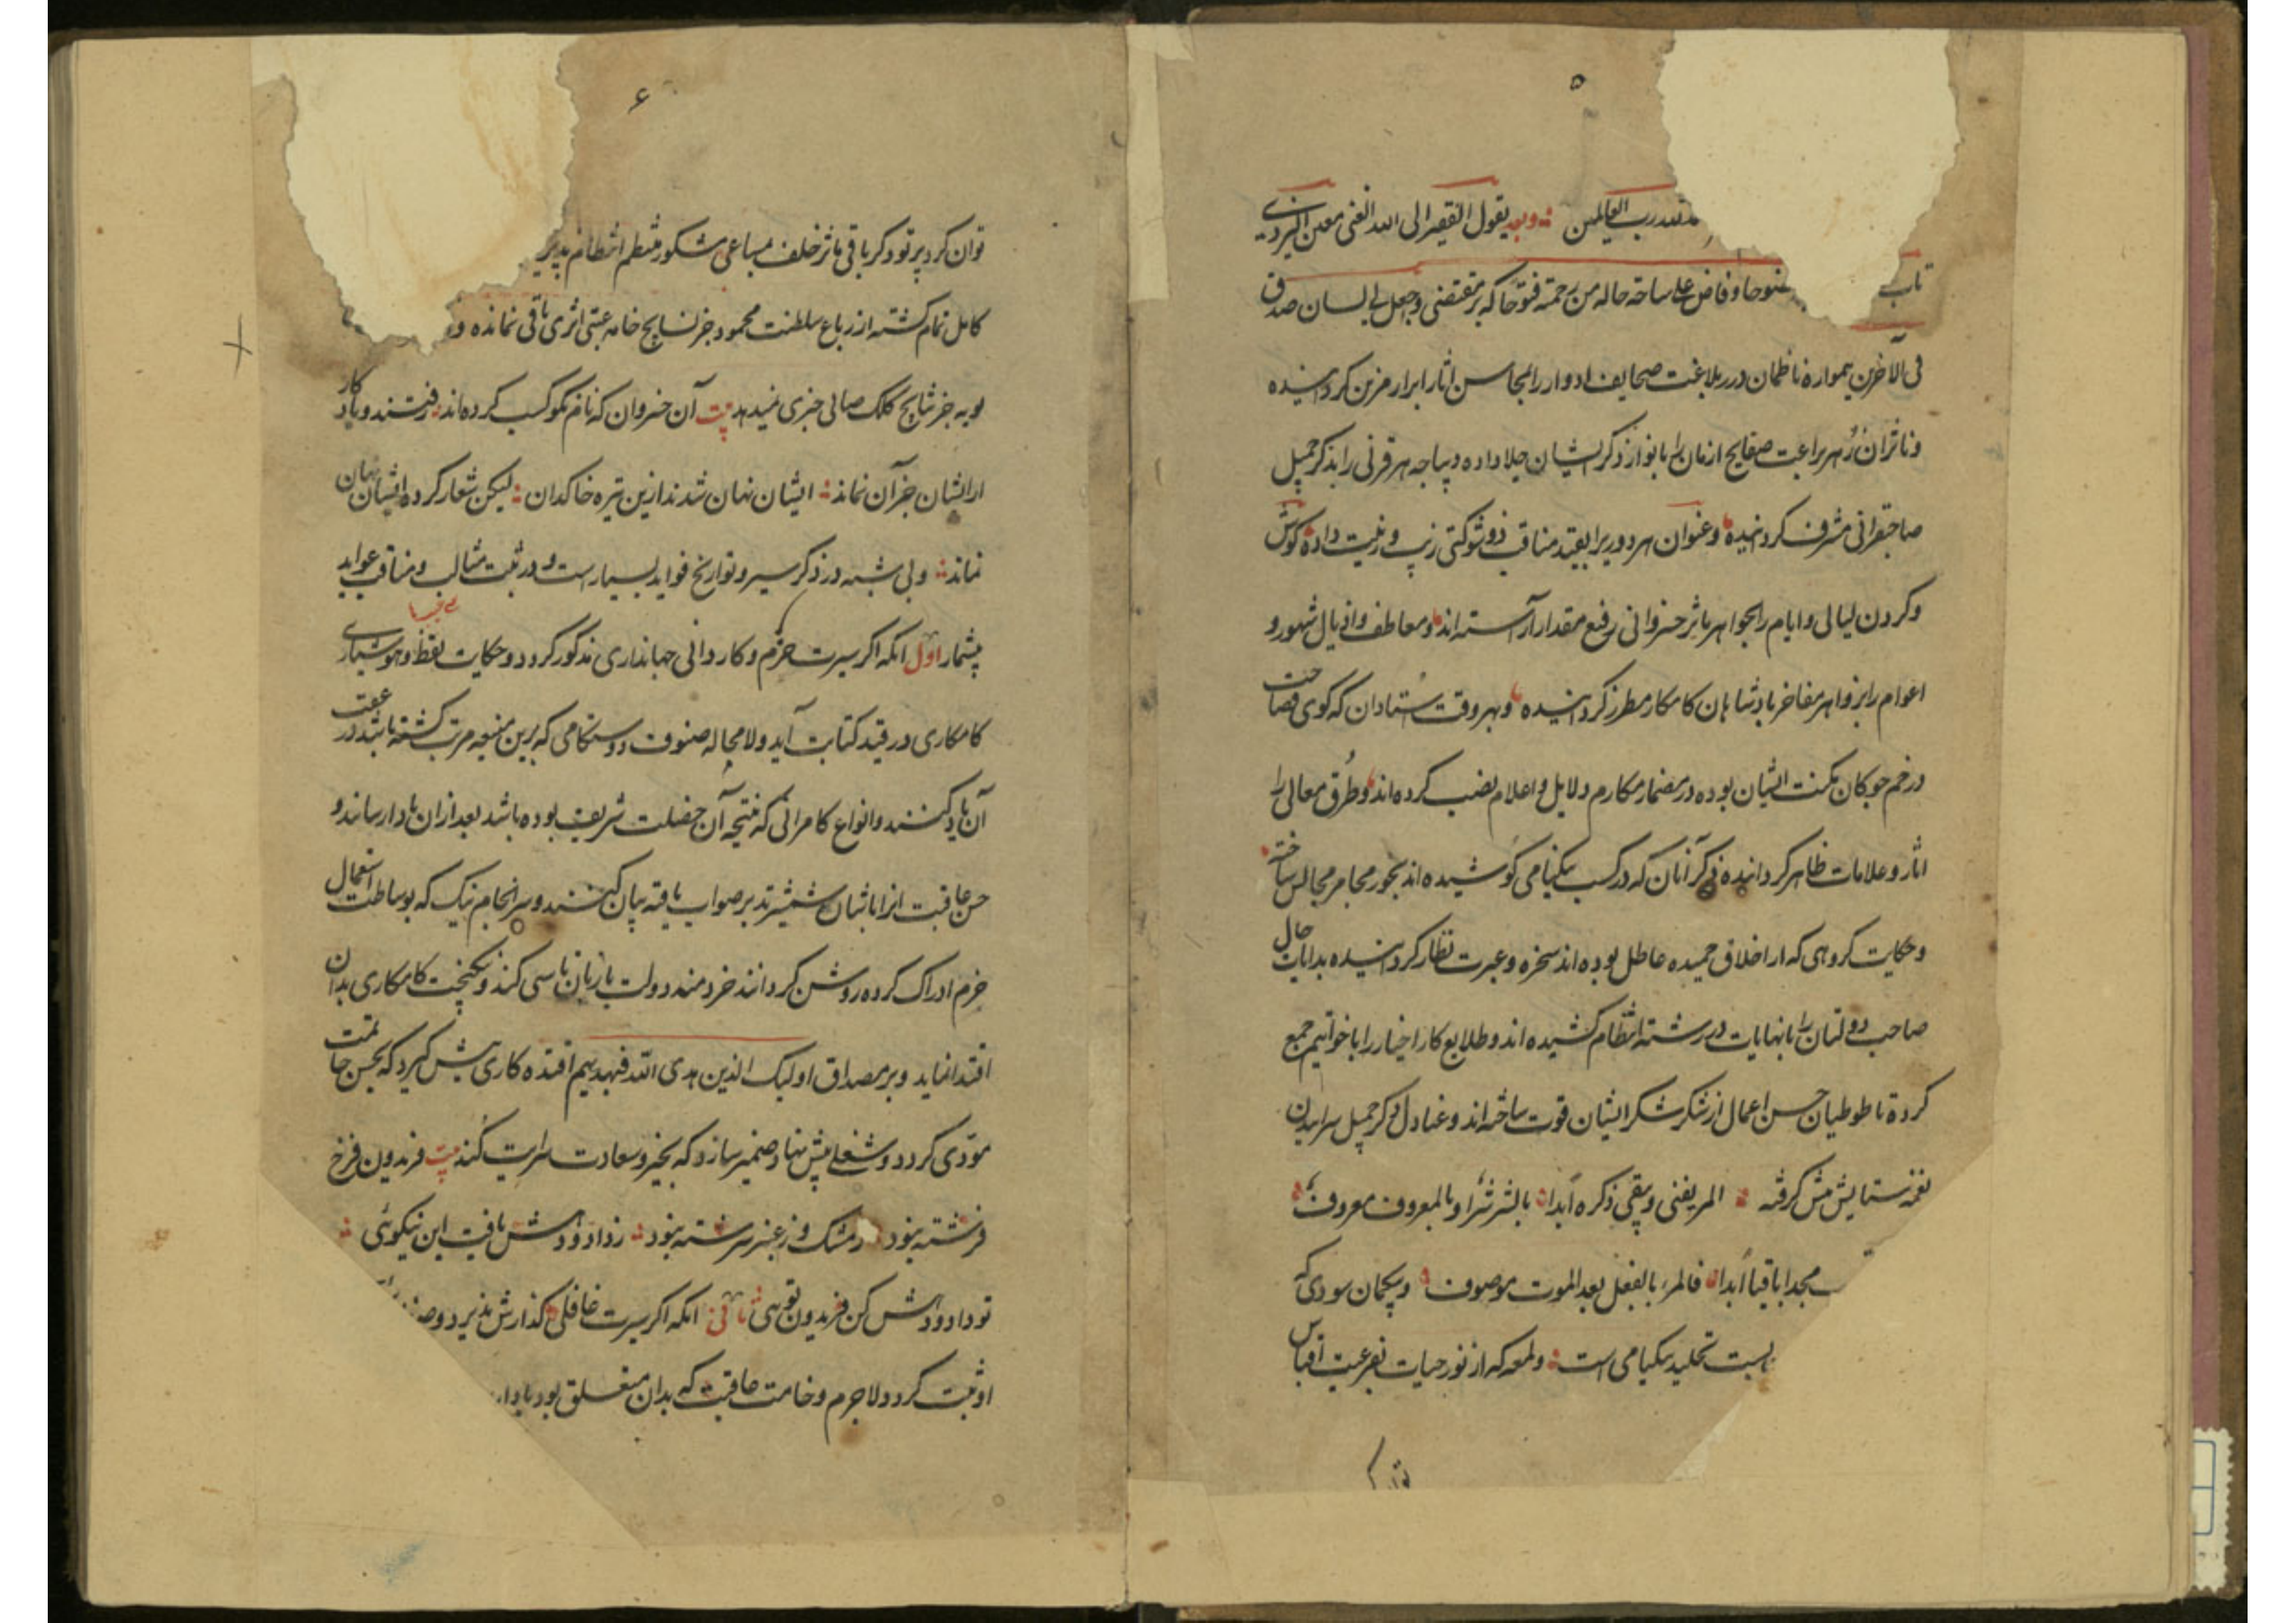 ۵
لله رب العالمین وبعد یقول الفقیر الی الله الغنی معین الیزدی
تاب فتوحا و فاض علی ساحة حاله من رحمته فتوحا که بر مقتضی و اجعل لی لسان صدق
فی الآخرین همواره ناظمان درر بلاغت صحایف ادوار را بمحاسن اثار ابرار مزین کردانیده
و ناثران زهر براعت صفایح ازمان را بانوار ذکر ایشان جلا داده دیباجه هر قرنی را بذکر جمیل
صاحبقرانی مشرف کردانیده و عنوان هر دوریرا بقید مناقب ذو شوکتی زیب و زینت داده کوش
و کردن لیالی و ایام را بجواهر ماثر خسروانی رفیع مقدار آراسته اند و معاطف و اذیال شهور و
اعوام را بزواهر مفاخر بادشاهان کامکار مطرز کردانیده و بهر وقت استادان که کوی فصاحت
در خم چوکان مکنت ایشان بوده در مضمار مکارم دلایل و اعلام نصب کرده اند و طرق معالی را
اثار و علامات ظاهر کردانیده ذکر آنان که در کسب نیکنامی کوشیده اند بخور مجامر مجالس ساخته
و حکایت کروهی که از اخلاق حمیده عاطل بوده اند سخره و عبرت نظار کردانیده بدایات حال
صاحب دولتان را بانهایات در رشته انتظام کشیده اند و طلایع کار اخیار را با خواتیم جمع
کرده تا طوطیان حسن اعمال از شکر شکر ایشان قوت ساخته اند و عنادل ذکر جمیل سراییدن
نغمه ستایش پیش کرفته المر یفنی و یبقی ذکره ابدا بالشر شرا و بالمعروف معروف
مجدا باقیا ابدا فالمرء بالفعل بعد الموت موصوف و بیکمان سودی که
نسبت تخلید نیکنامی است و لمعه که از نور حیات بفرعیت اقتباس
توان کر
۶
توان کرد پرتو ذکر باقی ماثر خلف مساعی مشکور منظم انتظام پذیر
کامل تمام کشته از رباع سلطنت محمود جز نسایج خامه عتبی اثری باقی نمانده و
بویه جز نتایج کلک صابی خبری نمیدهد بیت آن خسروان که نام نکو کسب کرده اند رفتند و یاد کار
از ایشان جز آن نماند ایشان نهان شدند ازین تیره خاکدان لیکن شعار کرده ایشان نهان
نماند و بی شبه در ذکر سیر و تواریخ فواید بسیار است و در ثبت مثالب و مناقب عواید
بیشمار اول انکه اکر سیرت حزم و کاردانی جهانداری مذکور کردد و حکایت تیقظ و هوشیاری
کامکاری در قید کتابت آید و لا محاله صنوف دوستکامی که برین منیعه مرتب کشته باشد در عقب
آن یاد کنند و انواع کامرانی که نتیجه آن خصلت شریف بوده باشد بعد ازان یاد ارسانند و
حسن عاقبت انرا باثبات شمشیر تدبر صواب یافته بیان کنند و سرانجام نیک که بوساطت استعمال
حزم ادراک کرده روشن کردانند خردمند دولت یار بان تاسی کند و نیکبخت کامکاری بدان
اقتدا نماید و بر مصداق اولیک الذین هدی الله فبهدیهم اقتده کاری پیش کیرد که بحسن خاتمت
مودی کردد و شغلی پیش نهاد ضمیر سازد که بخیر و سعادت سرایت کند بیت فریدون فرخ
فرشته نبود ز مشک و ز عنبر سرشته نبود ز داد و دهش یافت این نیکوئی
تو داد و دهش کن فریدون توئی ثانی انکه اکر سیرت غافلی کذارش پذیرد و صفت
او ثبت کردد لاجرم وخامت عاقبت که بدان متعلق بود یاد ار